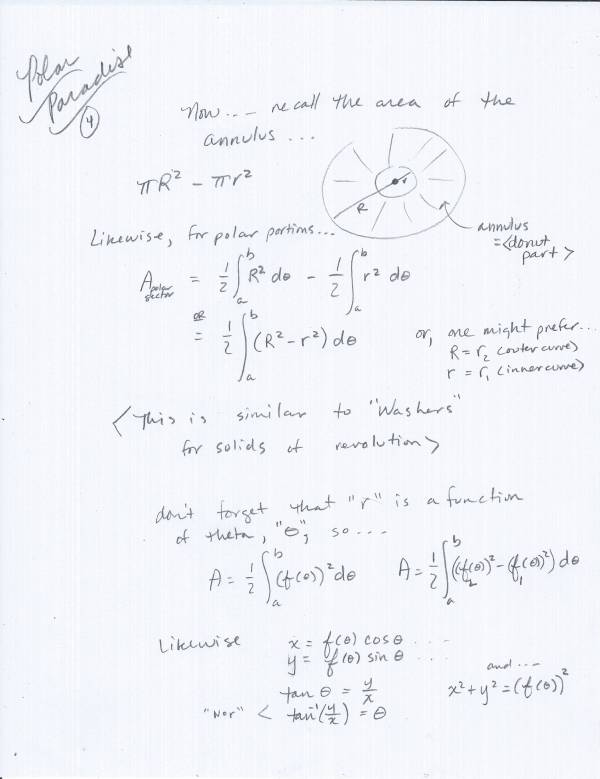 Polar
Paradise
4
Now... recall the area of the
annulus ...
πR² - πr²
r
R
annulus
= <donut
part>
Likewise, for polar portions...
A polar sector = 1/2 ∫_a^b R² dθ - 1/2 ∫_a^b r² dθ
OR
= 1/2 ∫_a^b (R² - r²) dθ
or, one might prefer...
R = r₂ (outer curve)
r = r₁ (inner curve)
<This is similar to "Washers"
for solids of revolution>
don't forget that "r" is a function
of theta, "θ", so ....
A = 1/2 ∫_a^b (f(θ))² dθ
A = 1/2 ∫_a^b ((f₂(θ))² - (f₁(θ))²) dθ
Likewise x = f(θ) cos θ ...
y = f(θ) sin θ ...
and ....
tan θ = y/x
x² + y² = (f(θ))²
< tan⁻¹(y/x) = θ